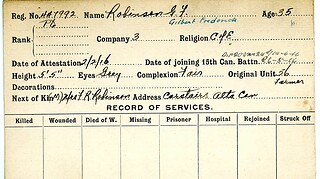 Reg. No. Name Robinson G.F. Age 35
Gilbert Frederick
Rank Pte Company 3 Religion C of E
Date of Attestation 2/2/16 Date of joining 15th Can. Battn.
Height 5' 5" Eyes Gray Complexion Fair Original Unit 56
Decorations Farmer
Next of Kin Robinson Address Carstairs Alta Can
RECORD OF SERVICES.
Killed Wounded Died of W. Missing Prisoner Hospital Rejoined Struck Off